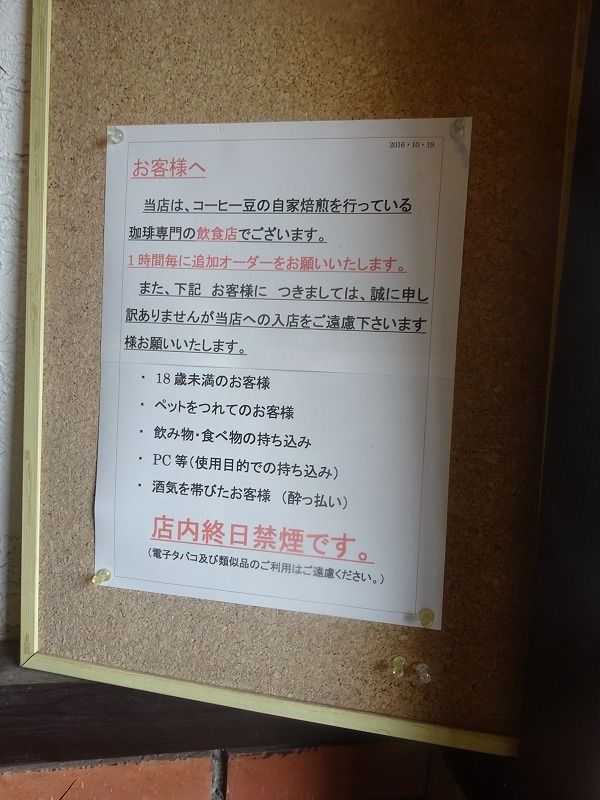 2016・10・19
お客様へ
当店は、コーヒー豆の自家焙煎を行っている
珈琲専門の飲食店でございます。
1時間毎に追加オーダーをお願いいたします。
また、下記 お客様に つきましては、誠に申し
訳ありませんが当店への入店をご遠慮下さいます
様お願いいたします。
・ 18歳未満のお客様
・ ペットをつれてのお客様
・ 飲み物・食べ物の持ち込み
・ PC等（使用目的での持ち込み）
・ 酒気を帯びたお客様 （酔っ払い）
店内終日禁煙です。
（電子タバコ及び類似品のご利用はご遠慮ください。）